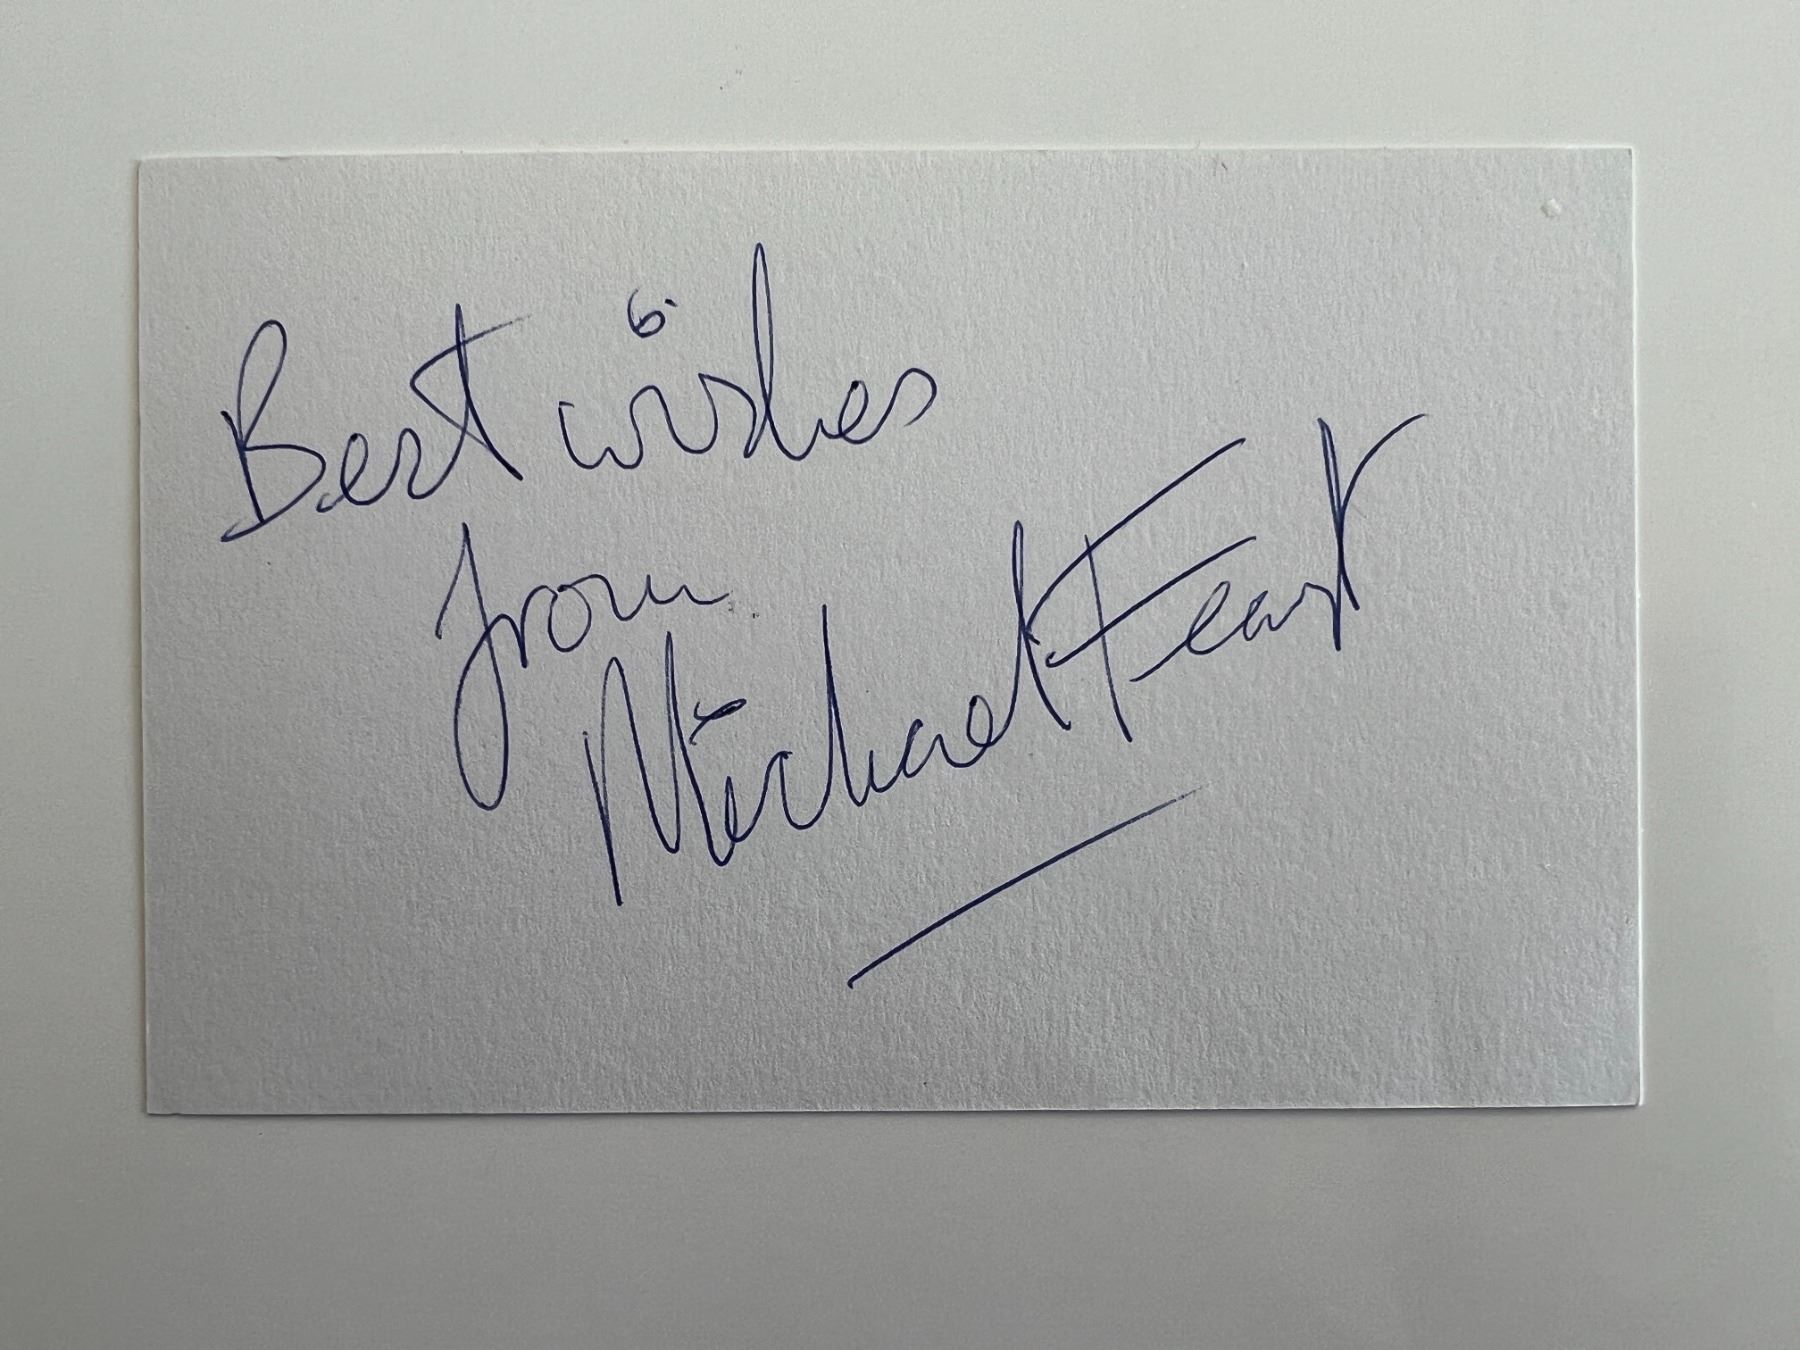 Best wishes
from
Michael Feast